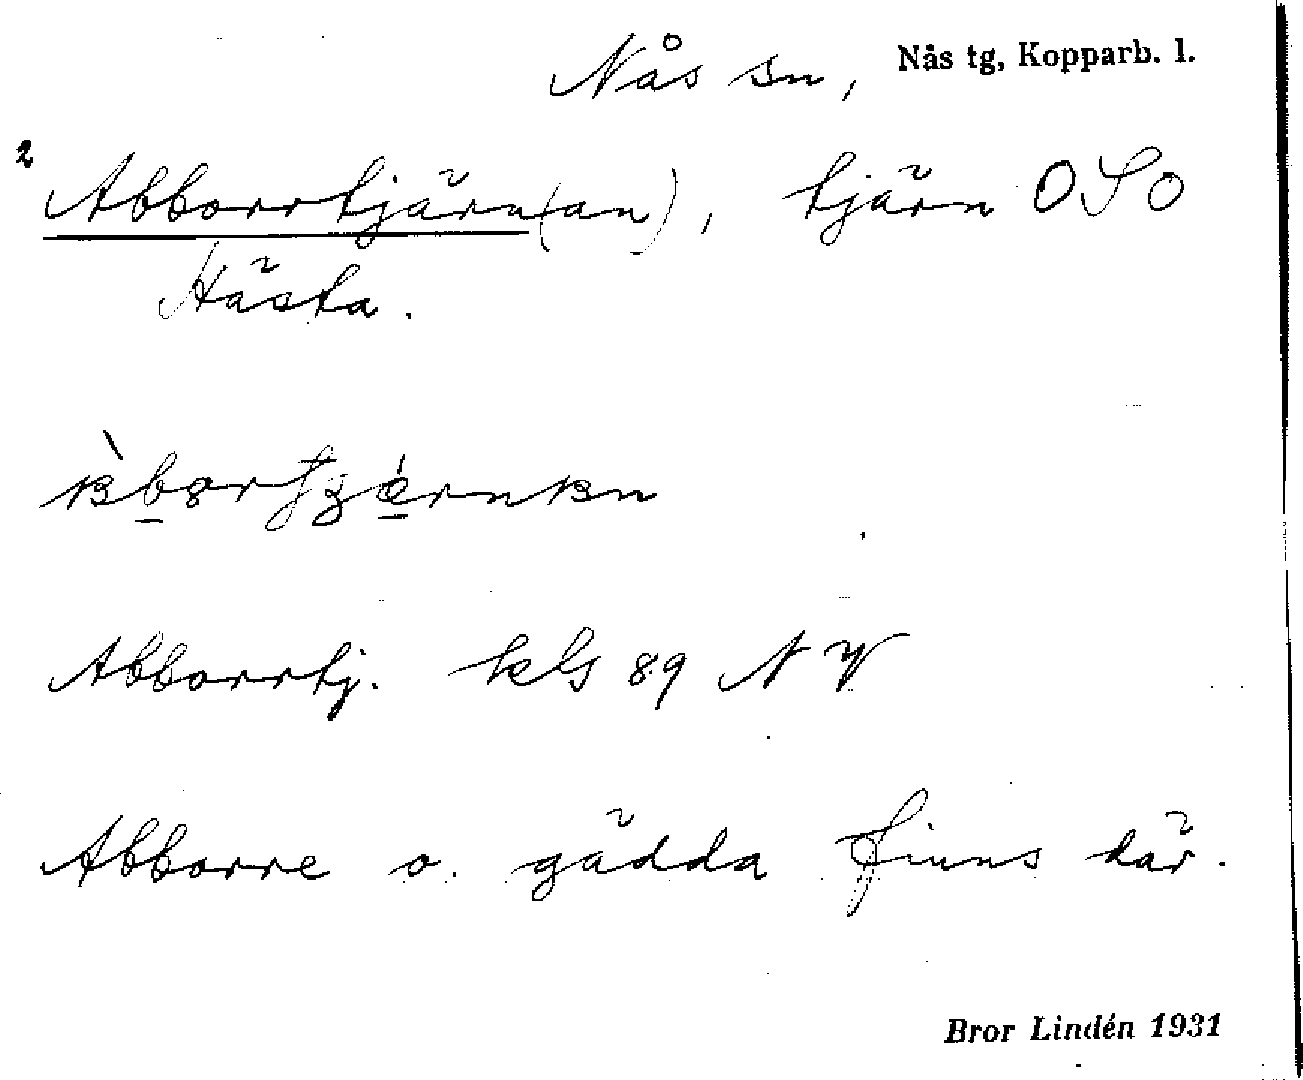 Nås sn, Nås tg, Kopparb. l.
2 Abborrtjärn(an), tjärn OSO
Hästa.
Abborrtj. kls 89 NV
Abborre o. gädda finns där.
Bror Lindén 1931